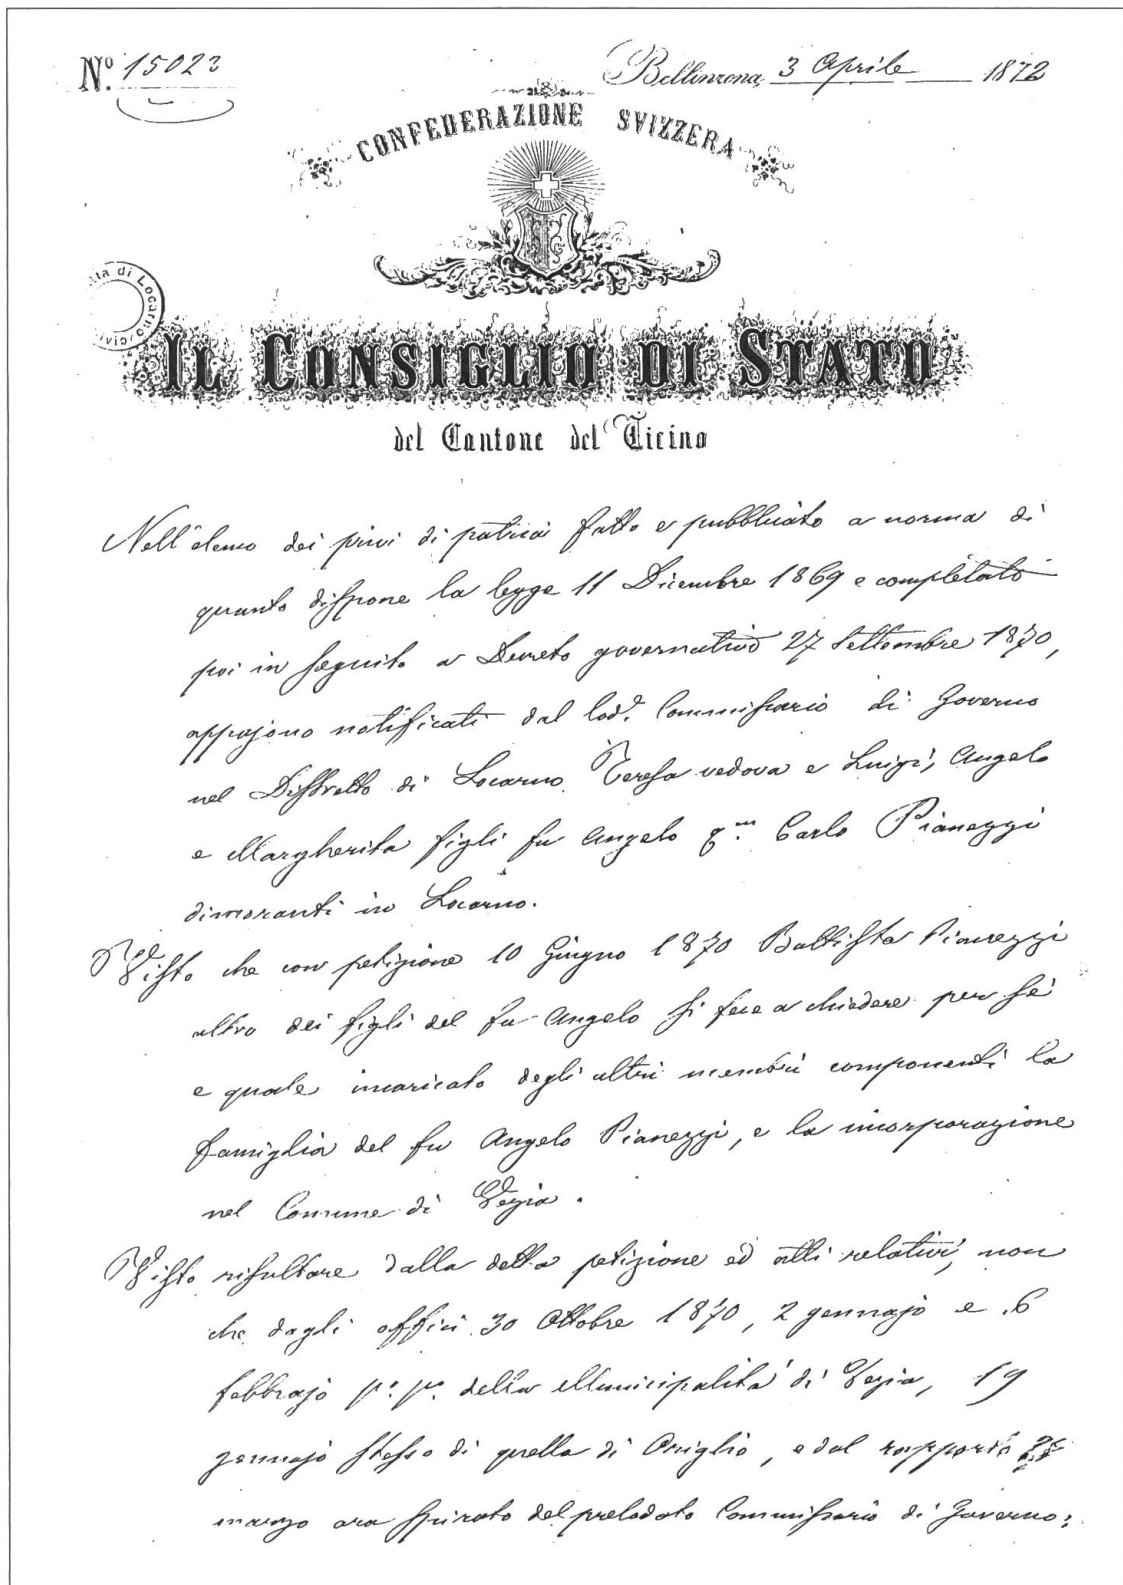 N.º 15023
Bellinzona, 3 Aprile 1872
CONFEDERAZIONE SVIZZERA
ità di Locarno
IL CONSIGLIO DI STATO
del Cantone del Ticino
Nell'elenco dei privi di patria fatto e pubblicato a norma di
quanto dispone la legge 11 Dicembre 1869 e completato
poi in seguito a Decreto governativo 27 Settembre 1870,
appajono notificati dal lod.º Commissario di Governo
nel Distretto di Locarno Teresa vedova e Luigi, Angelo
e Margherita figli fu Angelo q.m Carlo Pianezzi
dimoranti in Locarno.
Visto che con petizione 10 Giugno 1870 Battista Pianezzi
altro dei figli del fu Angelo si fece a chiedere per sé
e quale incaricato degli altri membri componenti la
famiglia del fu Angelo Pianezzi, e la incorporazione
nel Comune di Vezia.
Visto risultare dalla detta petizione ed atti relativi, non
che dagli officii 30 Ottobre 1870, 2 gennajo e 6
febbrajo p.º p.º della Municipalità di Vezia, 19
gennajo stesso di quella di Origlio, e dal rapporto
marzo ora spirato del prelodato Commissario di Governo: